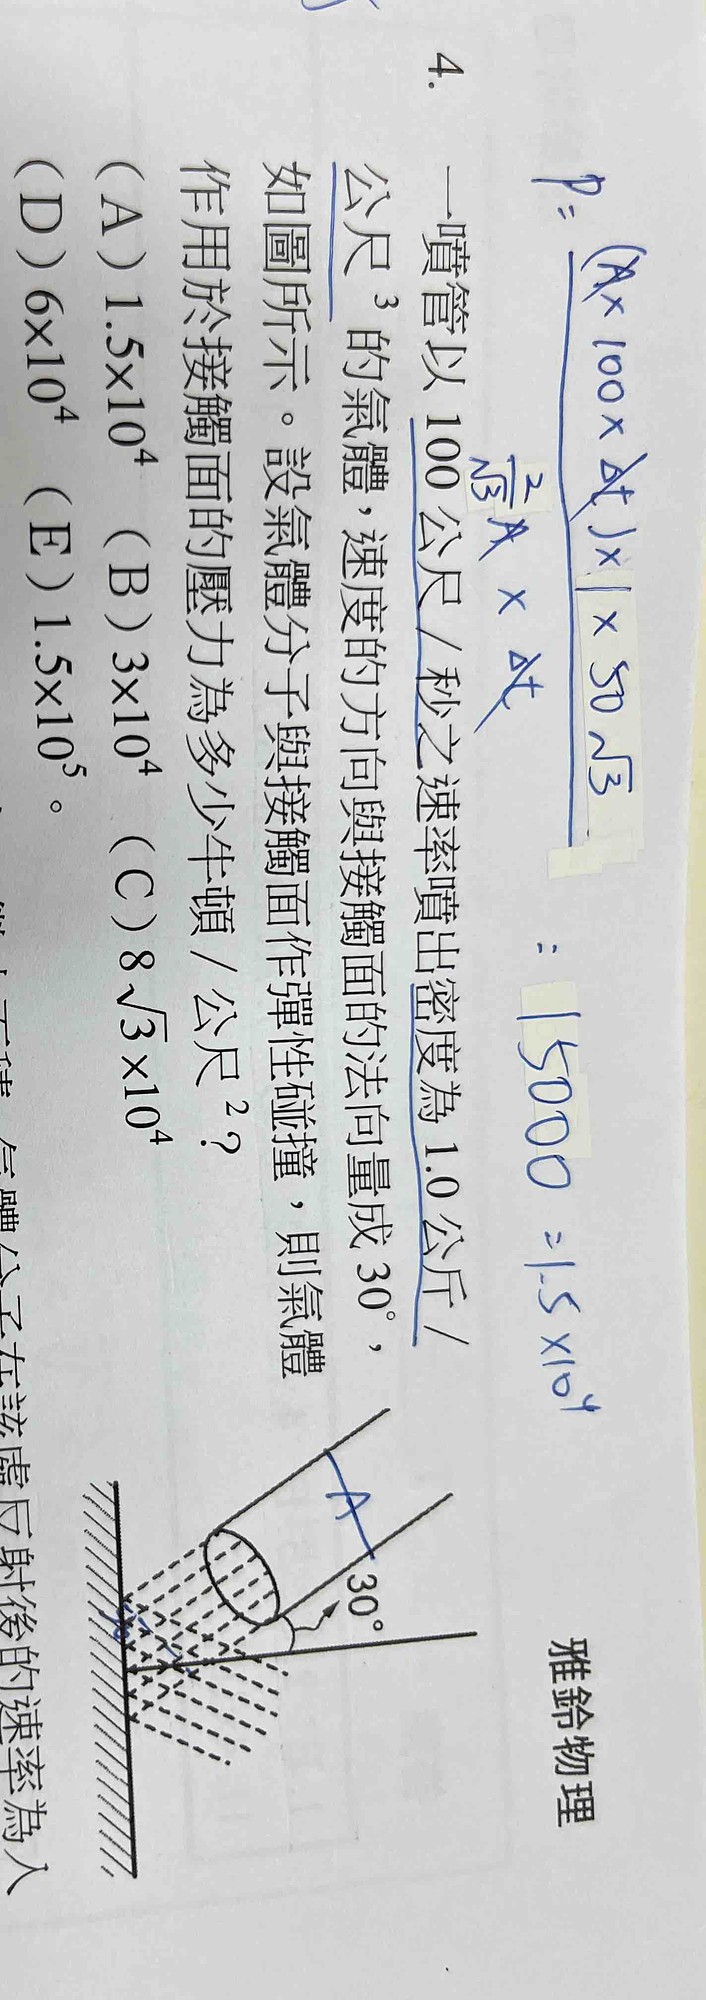 雅鈴物理
P = (A × 100 × Δt) × 1 × 50√3 / (2/√3 A × Δt) = 15000 = 1.5 × 10⁴
4. 一噴管以 100 公尺/秒之速率噴出密度為 1.0 公斤/
公尺³ 的氣體，速度的方向與接觸面的法向量成 30°，
如圖所示。設氣體分子與接觸面作彈性碰撞，則氣體
作用於接觸面的壓力為多少牛頓/公尺²？
(A) 1.5×10⁴ (B) 3×10⁴ (C) 8√3×10⁴
(D) 6×10⁴ (E) 1.5×10⁵。
A
30°
氣體分子在該處反射後的速率為入